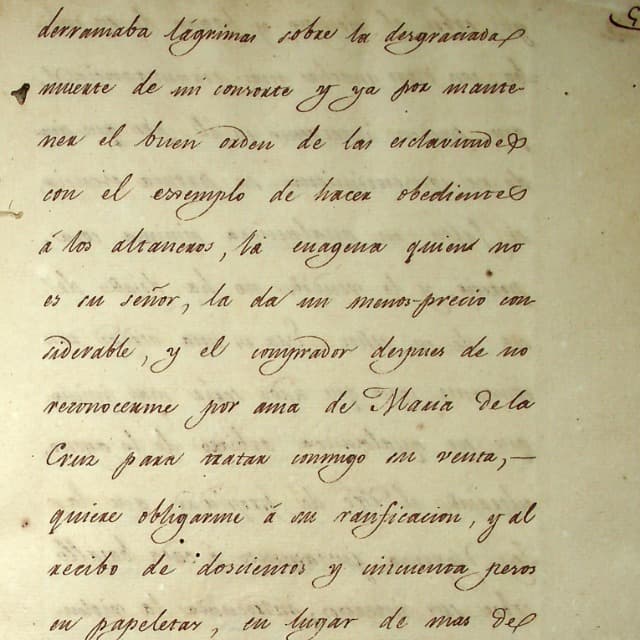 derramaba lágrimas sobre la desgraciada
muerte de mi consorte y ya por mante-
ner el buen orden de las esclavitudes
con el exemplo de hacer obedientes
á los altaneros, la enagena quien no
es su señor, la da un menos-precio con-
siderable, y el comprador despues de no
reconocerme por ama de Maria de la
Cruz para tratar conmigo su venta, —
quiere obligarme á su ratificacion, y al
recibo de doscientos y cincuenta pesos
en papeletas, en lugar de mas de